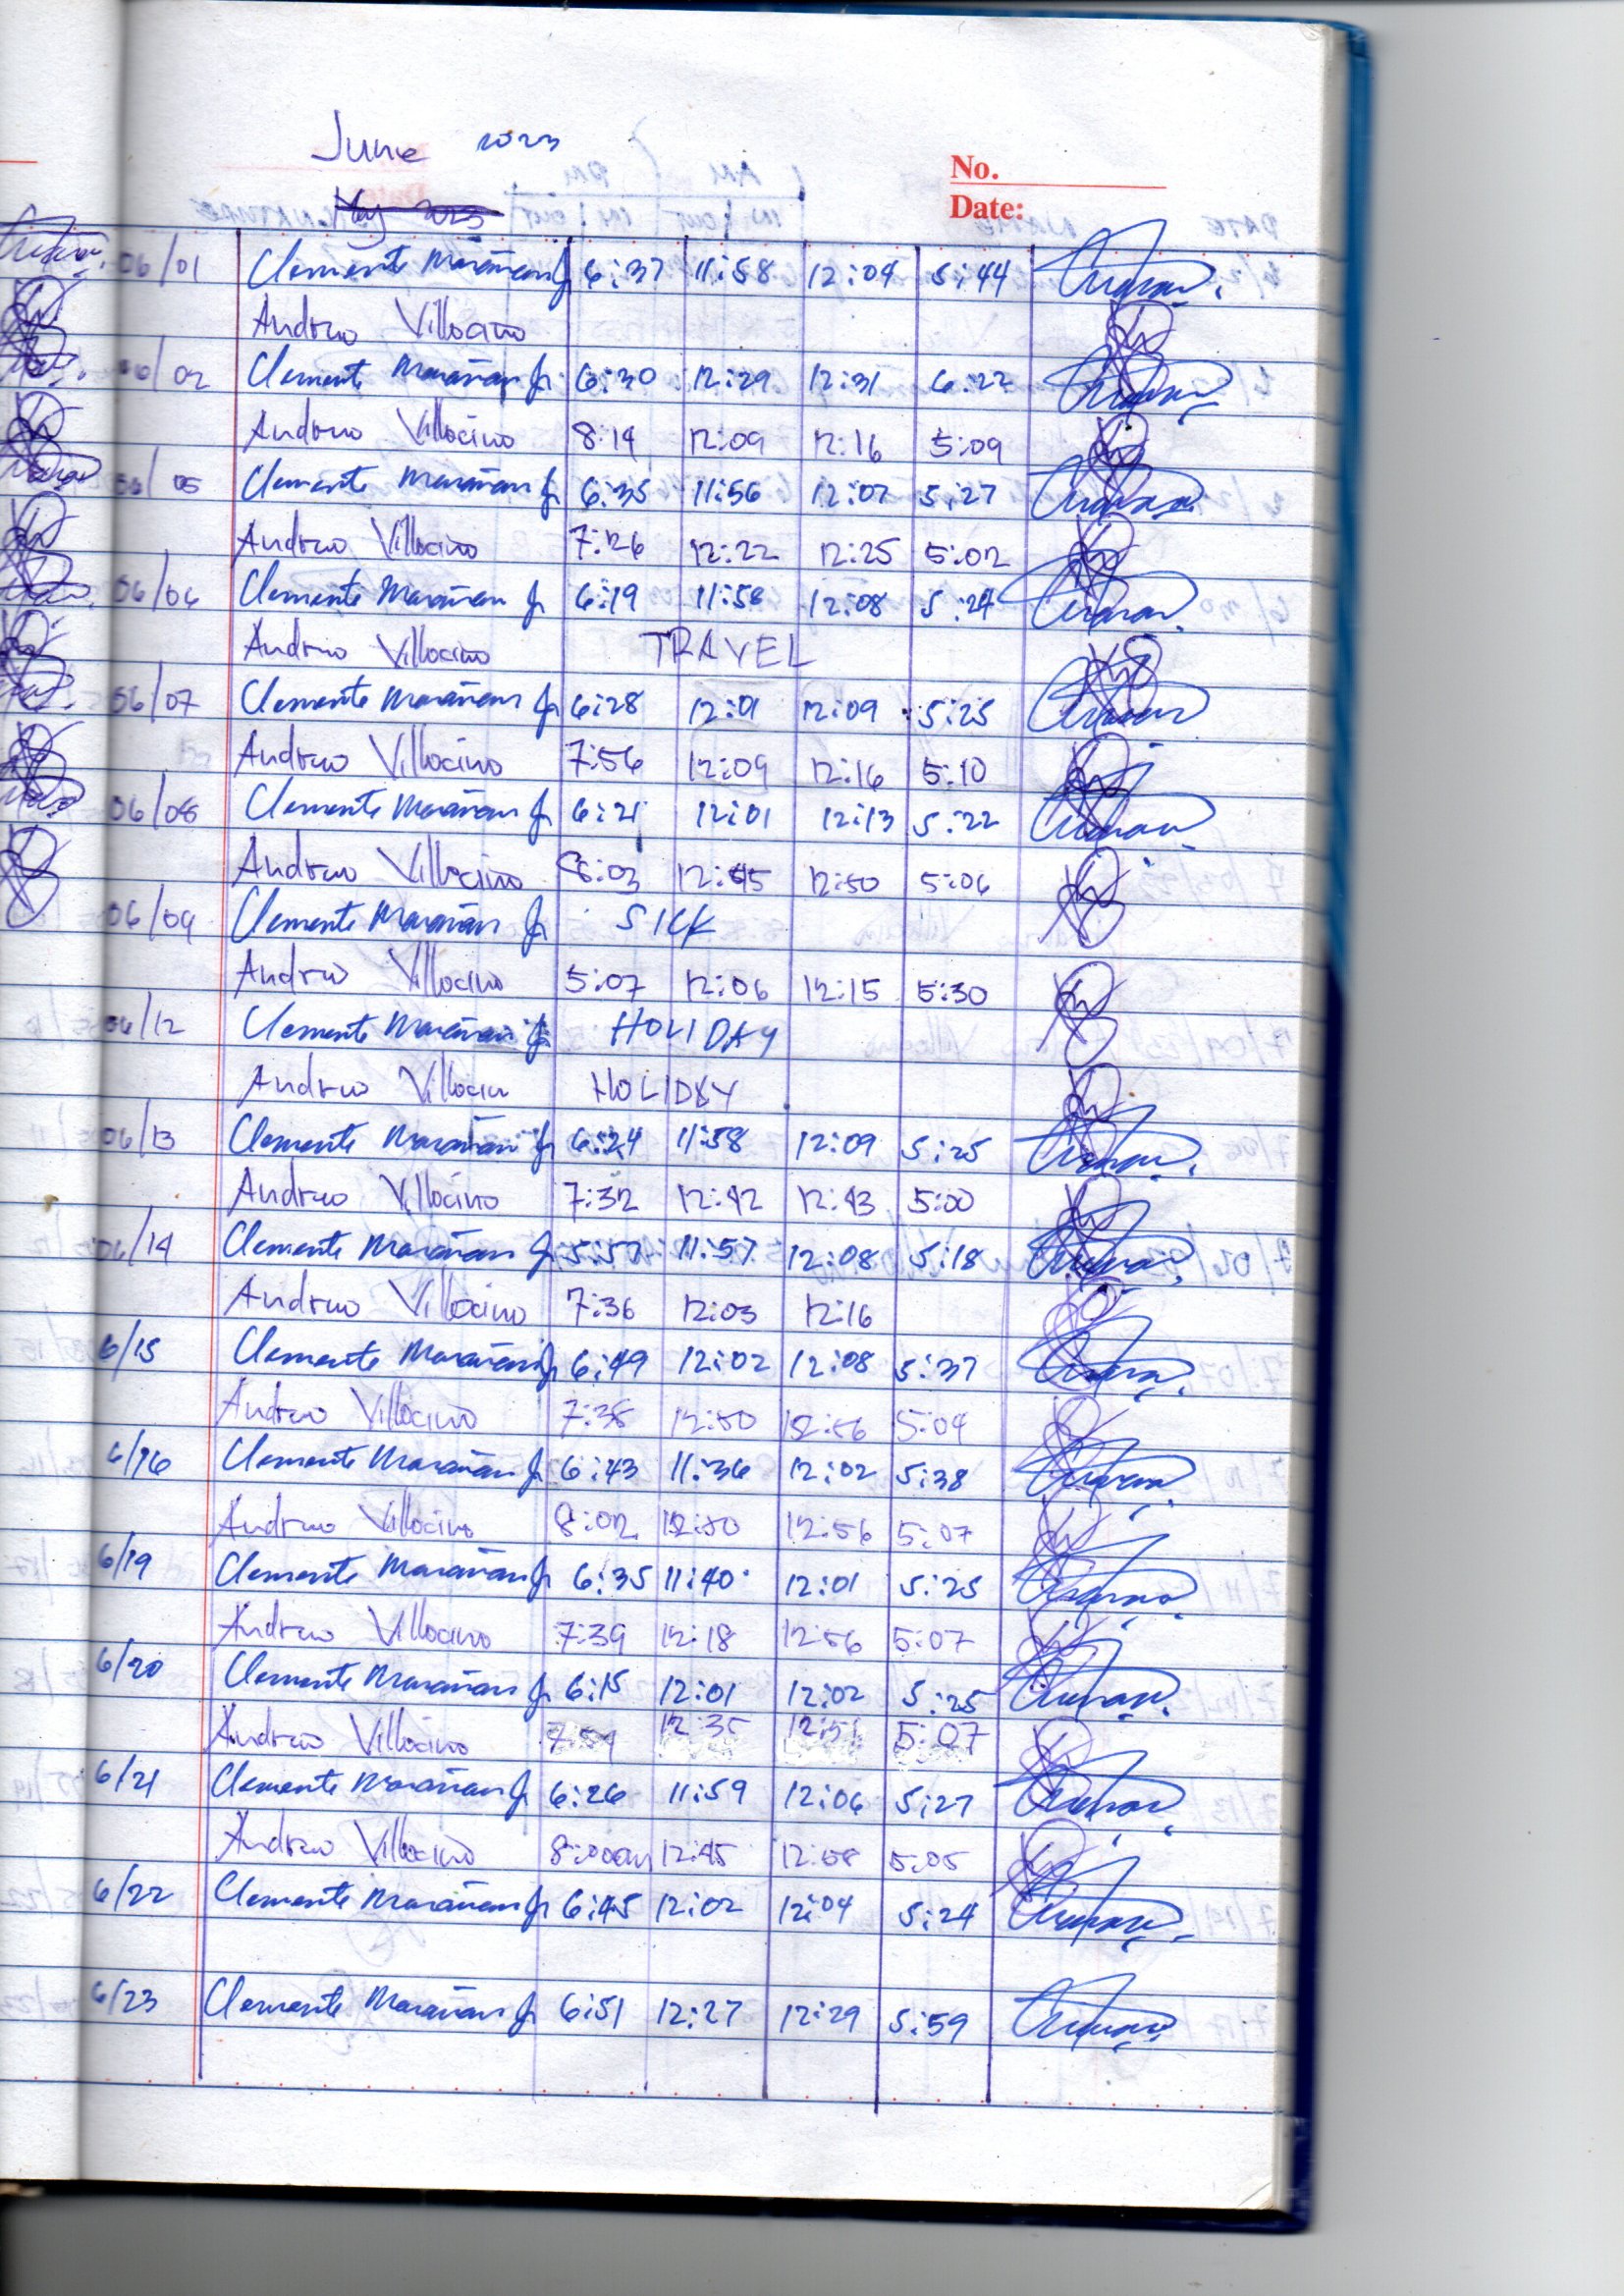 June 2023
No.
Date:
May 2023
06/01 Clemente Marañan Jr 6:37 11:58 12:04 5:44
Andrew Villocino
06/02 Clemente Marañan Jr. 6:30 12:29 12:31 6:22
Andrew Villocino 8:14 12:09 12:16 5:09
06/05 Clemente Marañan Jr 6:35 11:56 12:07 5:27
Andrew Villocino 7:26 12:22 12:25 5:02
06/06 Clemente Marañan Jr 6:19 11:58 12:08 5:24
Andrew Villocino TRAVEL
06/07 Clemente Marañan Jr 6:28 12:01 12:09 5:25
Andrew Villocino 7:56 12:09 12:16 5:10
06/08 Clemente Marañan Jr 6:21 12:01 12:13 5:22
Andrew Villocino 8:03 12:45 12:50 5:06
06/09 Clemente Marañan Jr SICK
Andrew Villocino 5:07 12:06 12:15 5:30
06/12 Clemente Marañan Jr HOLIDAY
Andrew Villocin HOLIDAY
06/13 Clemente Marañan Jr 6:24 11:58 12:09 5:25
Andrew Villocino 7:32 12:42 12:43 5:00
06/14 Clemente Marañan Jr 5:57 11:57 12:08 5:18
Andrew Villocino 7:36 12:03 12:16
6/15 Clemente Marañan Jr 6:49 12:02 12:08 5:37
Andrew Villocino 7:38 12:50 12:56 5:04
6/16 Clemente Marañan Jr 6:43 11:36 12:02 5:38
Andrew Villocino 8:02 12:50 12:56 5:07
6/19 Clemente Marañan Jr 6:35 11:40 12:01 5:25
Andrew Villocino 7:39 12:18 12:56 5:07
6/20 Clemente Marañan Jr 6:15 12:01 12:02 5:25
Andrew Villocino 7:59 12:35 5:07
6/21 Clemente Marañan Jr 6:26 11:59 12:06 5:27
Andrew Villocino 8:00am 12:45 12:58 5:05
6/22 Clemente Marañan Jr 6:45 12:02 12:04 5:24
6/23 Clemente Marañan Jr 6:51 12:27 12:29 5:59